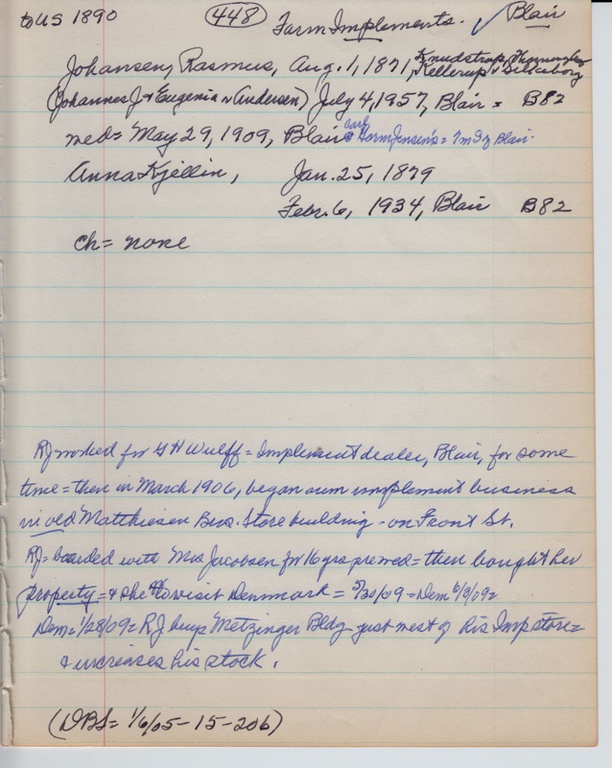 to US 1890 448 Farm Implements. ✓ Blair
Johansen, Rasmus, Aug. 1, 1871, Knudstrup, Thorning
Kellerup, Silkeborg
(Johannes J + Eugenia n Andersen) July 4, 1957, Blair = B82
wed = May 29, 1909, Blair @ Jensen's = 7m Blair.
Anna Kjellin, Jan. 25, 1879
Febr. 6, 1934, Blair B82
ch = none
RJ worked for G H Wulff = Implement dealer, Blair, for some
time = then in March 1906, began own implement business
in old Matthiesen Bros. Store building - on Front St.
RJ = boarded with Mrs Jacobsen for 16 yrs pre wed = then bought her
property = + she to visit Denmark = 5/30/09 = Dem
Dem = 1/28/09 = RJ buys Metzinger Bldg just west of his Imp store =
+ increases his stock.
(DBS = 1/6/05-15-206)